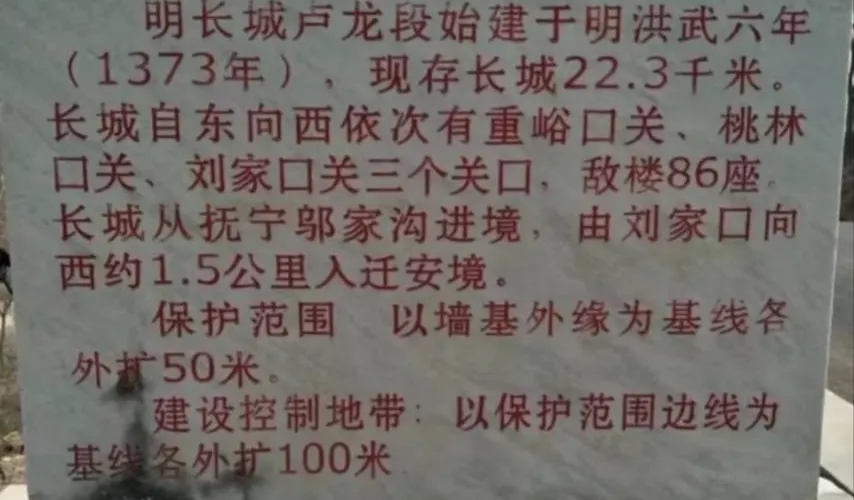 明长城卢龙段始建于明洪武六年
（1373年），现存长城22.3千米。
长城自东向西依次有重峪口关、桃林
口关、刘家口关三个关口，敌楼86座.
长城从抚宁邬家沟进境，由刘家口向
西约1.5公里入迁安境。
保护范围 以墙基外缘为基线各
外扩50米。
建设控制地带：以保护范围边线为
基线各外扩100米